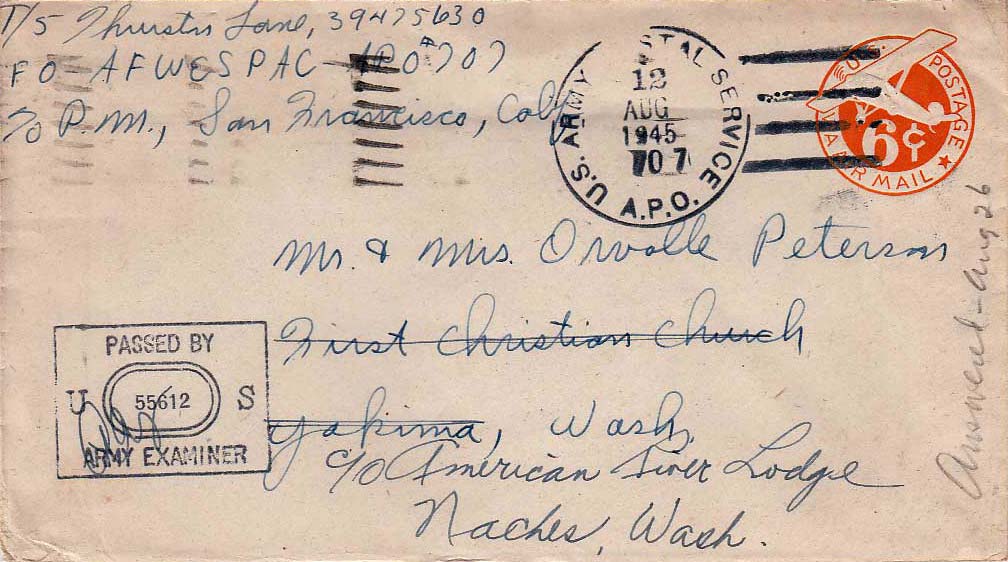 T/5 Thurstn Lane, 39475630
FO AFWESPAC APO #707
c/o P.M., San Francisco, Calif
U.S. ARMY POSTAL SERVICE
12
AUG
1945
707
A.P.O.
U.S. POSTAGE
6¢
VIA AIR MAIL
Mr. & Mrs. Orvalle Peterson
First Christian Church
Yakima, Wash.
c/o American River Lodge
Naches, Wash.
PASSED BY
U 55612 S
ARMY EXAMINER
Answered - Aug 26